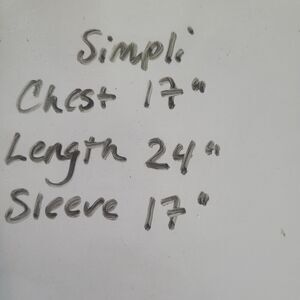 Simpli
Chest 17"
Length 24"
Sleeve 17"